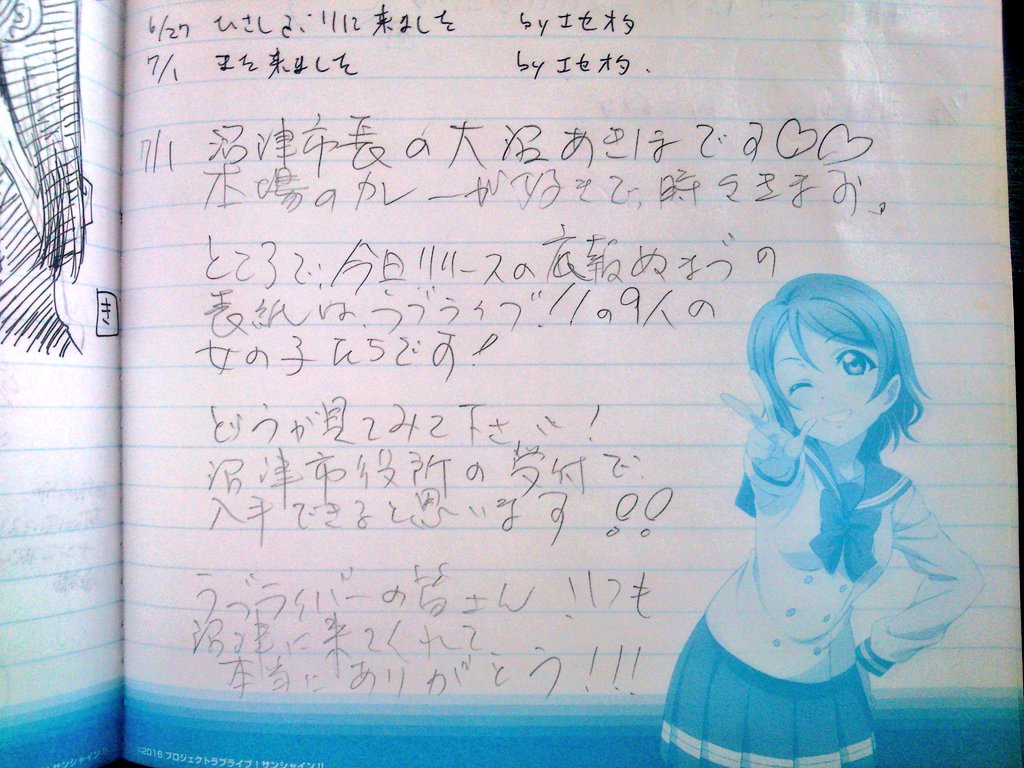 6/27 ひさしぶりに来ました by エセオタ
7/1 また来ました by エセオタ.
7/1 沼津市長の大沼あきほです♡♡
本場のカレーが好きで、時々きます。
ところで、今日リリースの広報ぬまづの
表紙は、ラブライブ!!の9人の
女の子たちです!
どうか見てみて下さい!
沼津市役所の受付で
入手できると思います!!
ラブライバーの皆さん、いつも
沼津に来てくれて、
本当にありがとう!!!
き
サンシャイン!!
©2016 プロジェクトラブライブ!サンシャイン!!